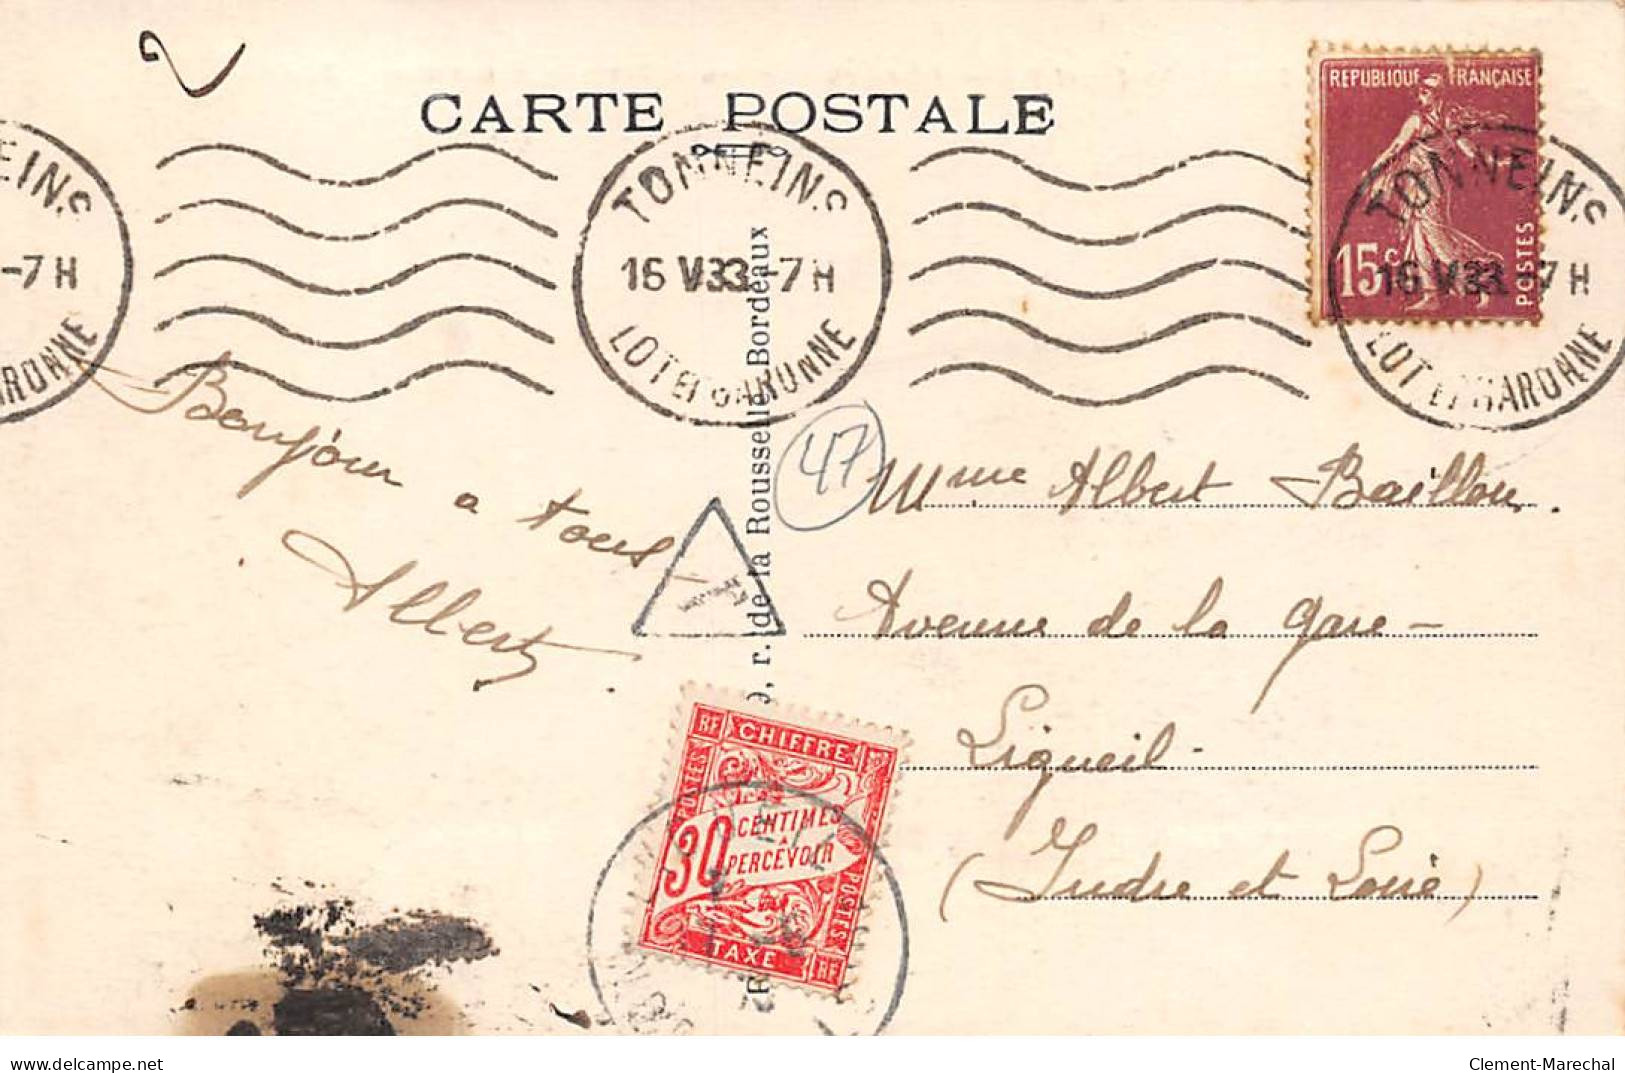 2
CARTE POSTALE
REPUBLIQUE FRANÇAISE
15c
POSTES
TONNEINS
16 V33 -7H
LOT ET GARONNE
TONNEINS
16 V33 -7H
LOT ET GARONNE
EINS
-7H
ARONNE
Bonjour
a tous
Albert
47
r. de la Rousselle Bordeaux
T
Mme Albert Baillou.
Avenue de la gare -
Ligueil -
(Indre et Loire)
RF CHIFFRE
POSTES
30 CENTIMES
A
PERCEVOIR
POSTES
TAXE RF
delcampe.net
Clement-Marechal